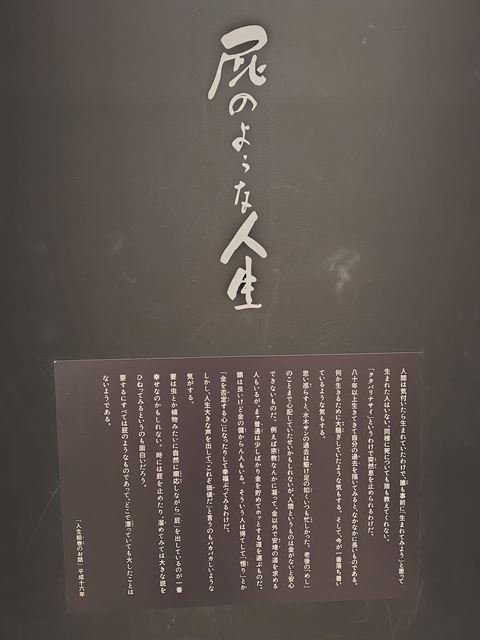 屁のような人生
人間は気付いたら生まれていたわけで、誰も事前に「生まれてみよう」と思って
生まれた人はいない。同様に死についても誰も教えてくれない。
「クタバリナサイ」というわけで突然息を止められるわけだ。
八十年以上生きてきて自分の過去を描いてみると、なかなかに長いものである。
何か生きるために大騒ぎしていたような気もする。そして、今が一番落ち着い
ているような気もする。
思い巡らすと、水木サンの過去は駆け足の如くいつも忙しかった。老後の“めし”
のことまで心配していたせいかもしれないが、人間というものは金がないと安心
できないものだ。例えば宗教なんかに凝って、金以外で安堵の道を求める
人もいるが、まァ普通は少しばかり金を貯めてホッとする道を選ぶものだ。
頭は良いけど金の儲からん人もいる。そういう人は得てして「悟り」とか
「金を否定する心」になったりして幸福ぶってみるわけだ。
しかし、「人生大きな声を出して「これぞ価値だ」と言うのもバカバカしいような
気がする。
要は虫とか植物みたいに自然に順応しながら「屁」を出しているのが一番
幸せなのかもしれない。時には屁を止めたり溜めてみては大きな屁を
ひねってみるというのも面白いだろう。
要するにすべては屁のようなものであって、どこで漂っていても大したことは
ないようである。
「人生絵巻のお話」平成十六年